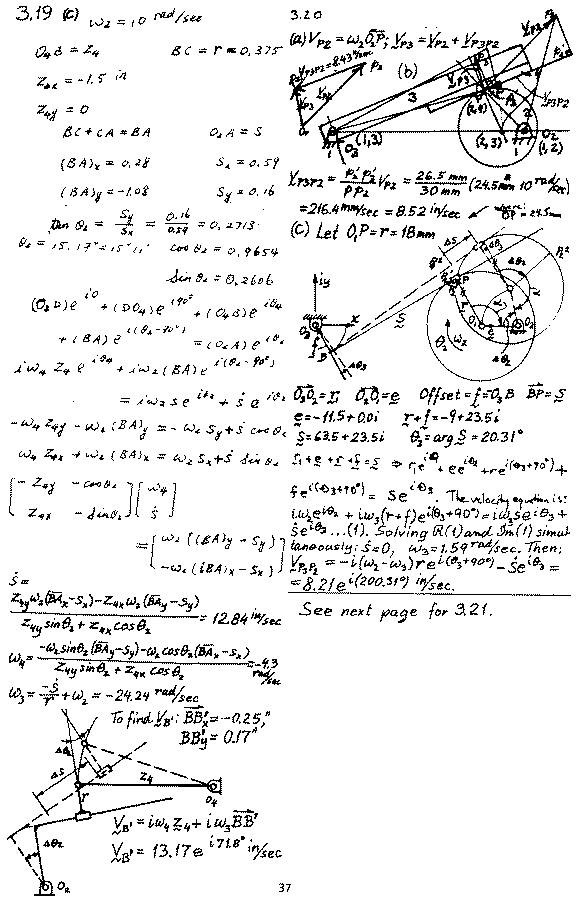 3.19 (c) ω₂ = 10 rad/sec
O₄B = Z₄ BC = r = 0.375
Z₄ₓ = -1.5 in
Z₄y = 0
BC + CA = BA O₂A = S
(BA)ₓ = 0.28 Sₓ = 0.59
(BA)y = -1.08 Sy = 0.16
tan θ₂ = Sy/Sₓ = 0.16/0.59 = 0.2713
θ₂ = 15.17° = 15°11' cos θ₂ = 0.9654
sin θ₂ = 0.2606
(O₂D)e^{i0} + (DO₄)e^{i90°} + (O₄B)e^{iθ₄}
+ (BA)e^{i(θ₂-90°)} = (O₂A)e^{iθ₂}
iω₄ Z₄ e^{iθ₄} + iω₂(BA)e^{i(θ₂-90°)}
= iω₂ s e^{iθ₂} + ṡ e^{iθ₂}
-ω₄ Z₄y - ω₂(BA)y = -ω₂ Sy + ṡ cos θ₂
ω₄ Z₄ₓ + ω₂(BA)ₓ = ω₂ Sₓ + ṡ sin θ₂
[-Z₄y -cos θ₂] [ω₄]
[Z₄ₓ -sin θ₂] [ṡ]
= [ω₂((BA)y - Sy)]
[-ω₂((BA)ₓ - Sₓ)]
ṡ =
Z₄yω₂(BAₓ-Sₓ)-Z₄ₓω₂(BAy-Sy) / Z₄y sinθ₂ + Z₄ₓ cosθ₂ = 12.84 in/sec
ω₄ = -ω₂sinθ₂(BAy-Sy)-ω₂cosθ₂(BAₓ-Sₓ) / Z₄y sinθ₂ + Z₄ₓ cosθ₂ = -4.3 rad/sec
ω₃ = -ṡ/r + ω₂ = -24.24 rad/sec
To find V_B': BB'ₓ = -0.25,"
BB'y = 0.17"
Δθ₂
ΔS
Z₄
r
O₄
Δθ₂
O₂
V_B' = iω₄Z₄ + iω₃BB'
V_B' = 13.17e^{i71.8°} in/sec
3.20
(a) V_P2 = ω₂O₂P; V_P3 = V_P2 + V_P3P2
(b)
3
(1,3)
(2,3)
O₂
(1,2)
V_P3P2
V_P3P2 = p₂'p₃'/pp₂' V_P2 = 26.5 mm/30 mm (24.5mm * 10 rad/sec)
= 216.4 mm/sec = 8.52 in/sec
(c) Let O₁P = r = 18mm
ΔS
Δθ₃
iy
x
S
B
Δθ₃
Δθ₂
O₂O₂ = r, O₂O₁ = e Offset = f = O₃B BP = S
e = -11.5+0.0i r+f = -9+23.5i
S = 63.5+23.5i θ₃ = arg S = 20.31°
r₁ + e + r + f = S ⇒ r₁e^{iθ₁} + ee^{iθ₂} + re^{i(θ₃+90°)} +
fe^{i(θ₃+90°)} = Se^{iθ₃}. The velocity equation is:
iω₂ee^{iθ₂} + iω₃(r+f)e^{i(θ₃+90°)} = iω₃Se^{iθ₃} +
Ṡe^{iθ₃}...(1). Solving R(1) and Im(1) simul
taneously: Ṡ=0, ω₃ = 1.59 rad/sec. Then;
V_P3P2 = -i(ω₂-ω₃)re^{i(θ₃+90°)} - Ṡe^{iθ₃} =
= 8.21e^{i(200.31°)} in/sec.
See next page for 3.21.
37